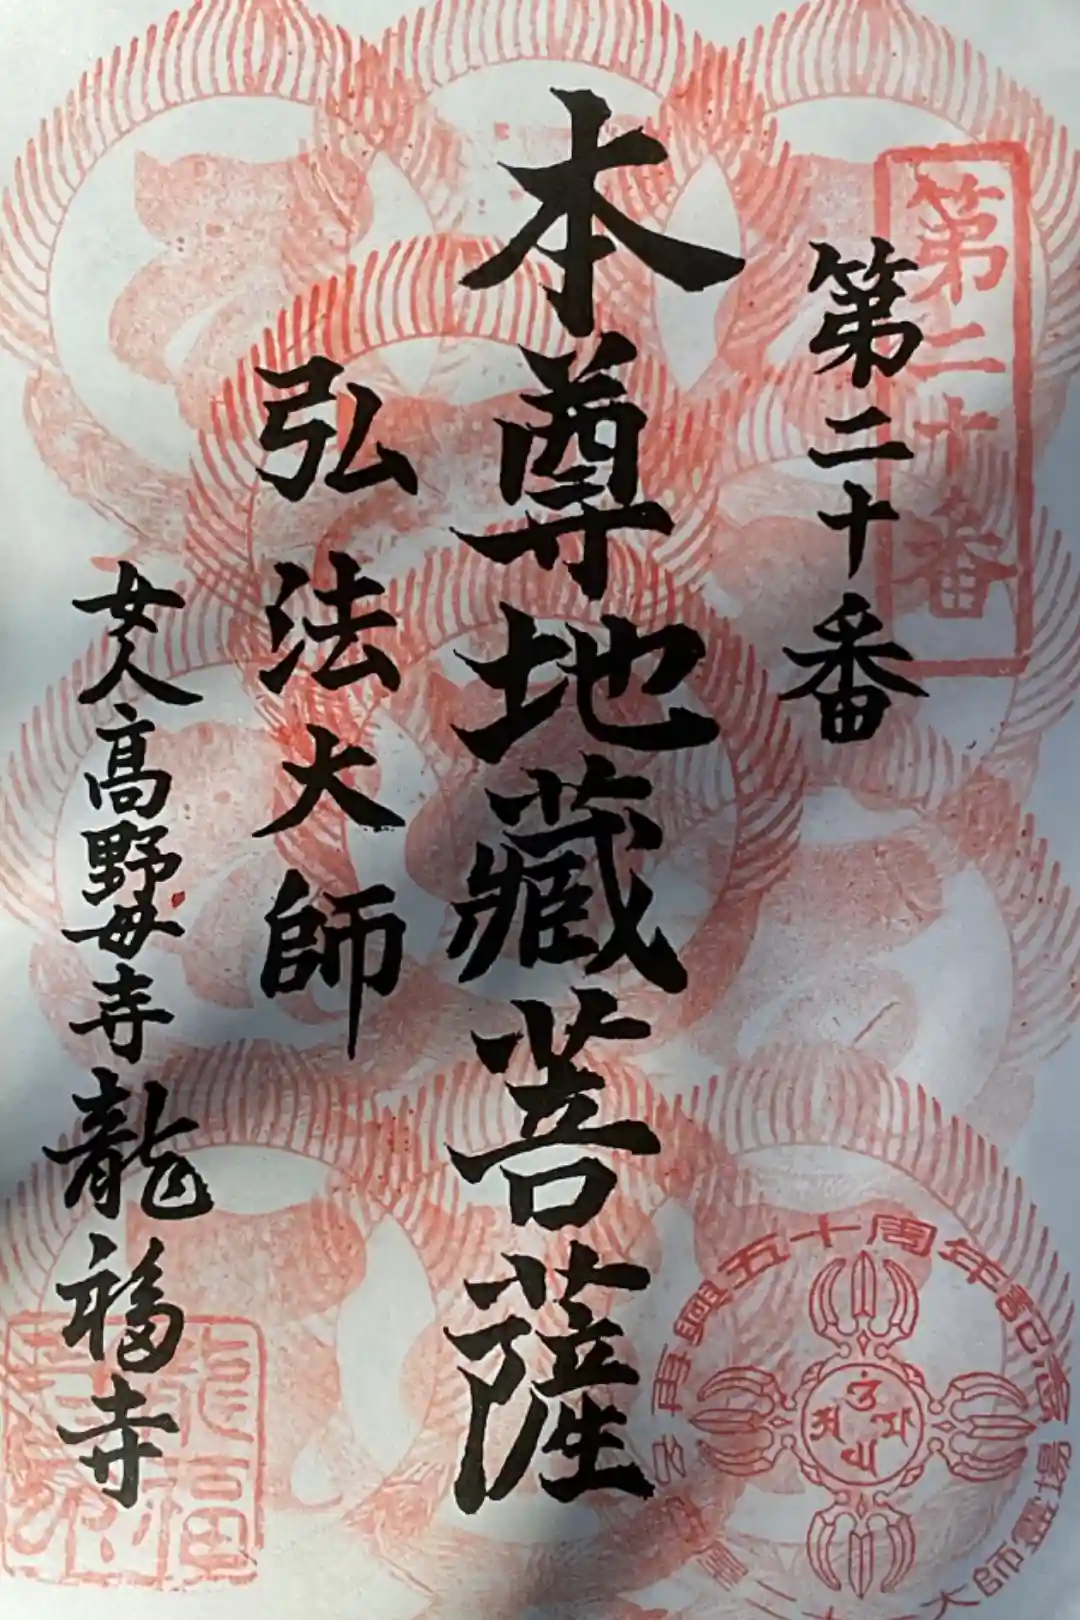 第二十番
第二十番
本尊地藏菩薩
弘法大師
女人高野毋寺龍福寺
再興五十周年記念
大師霊場
龍福